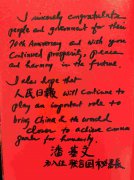 I sincerely congratulate
people and government for their
70th Anniversary and wish you
continued prosperity, peace
and harmony in the future.
I also hope that
人民日報 will continue to
play an important role to
bring China & the world
closer to achieve common
goals for humanity.
潘基文